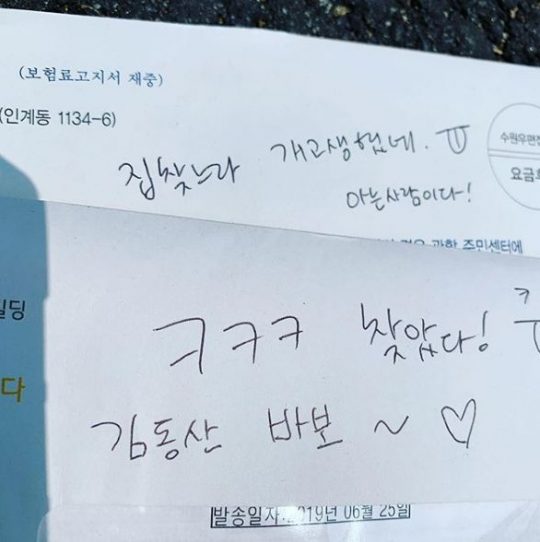 (보험료고지서 재중)
(인계동 1134-6)
수원우편집
요금후
집찾느라 개고생했네. ㅠ
아는사람이다!
관할 주민센터에
빌딩
다
ㅋㅋㅋ 찾았다!
김동산 바보 ~ ♡
발송일자:2019년 06월 25일